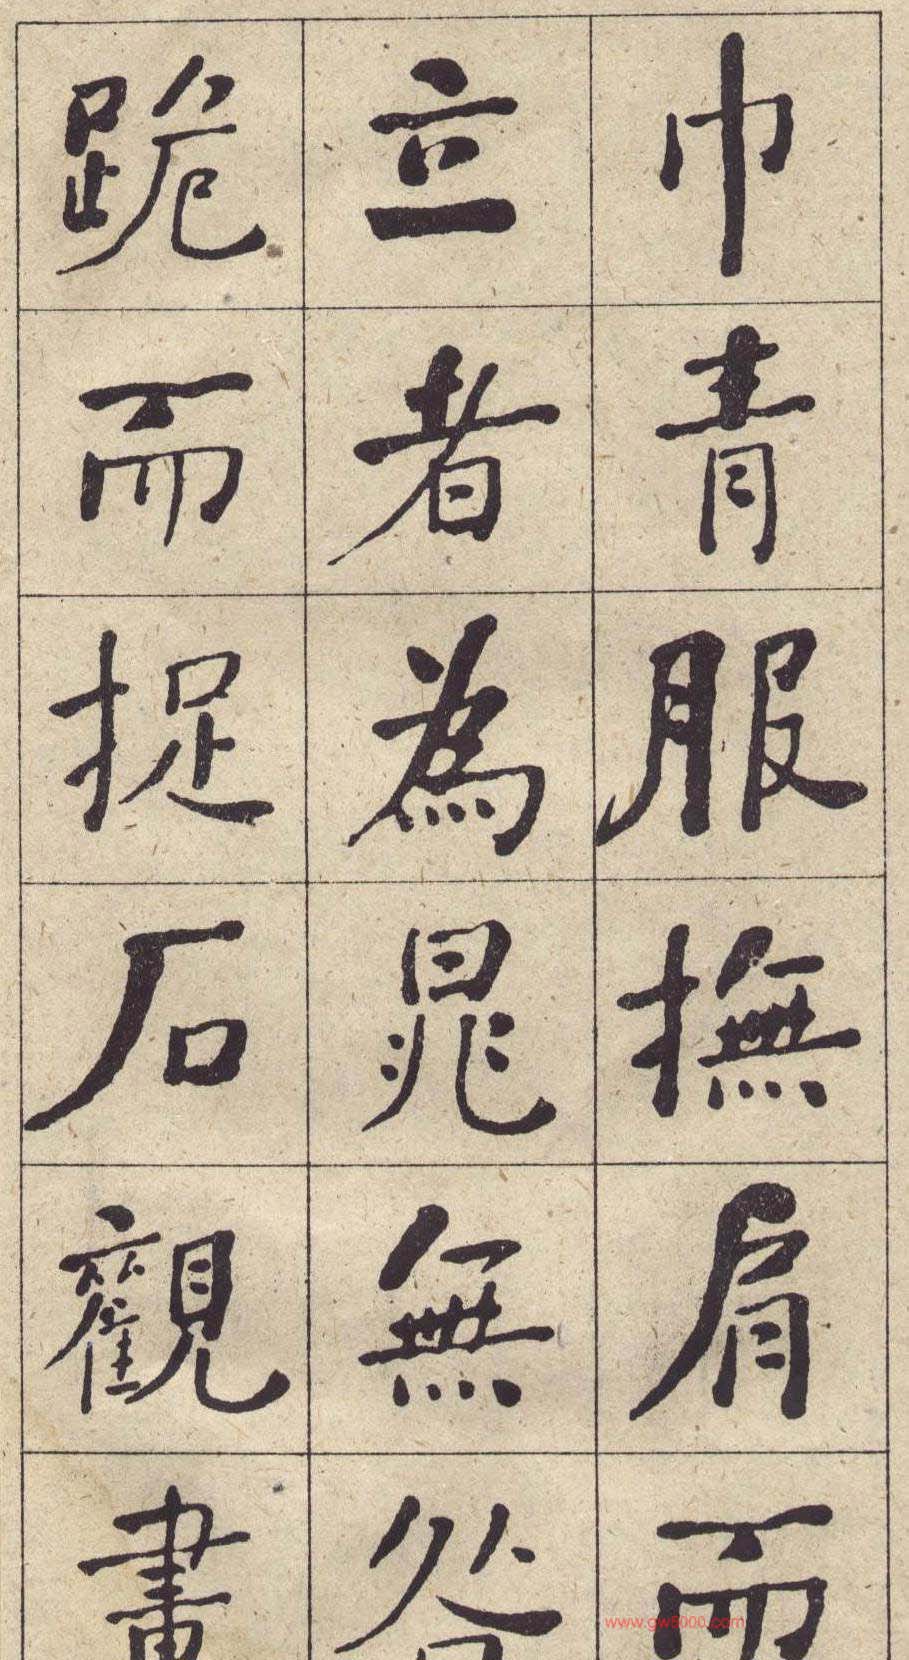 巾青服撫肩而
立者為晁無咎
跪而捉石觀畫
www.gw5000.com